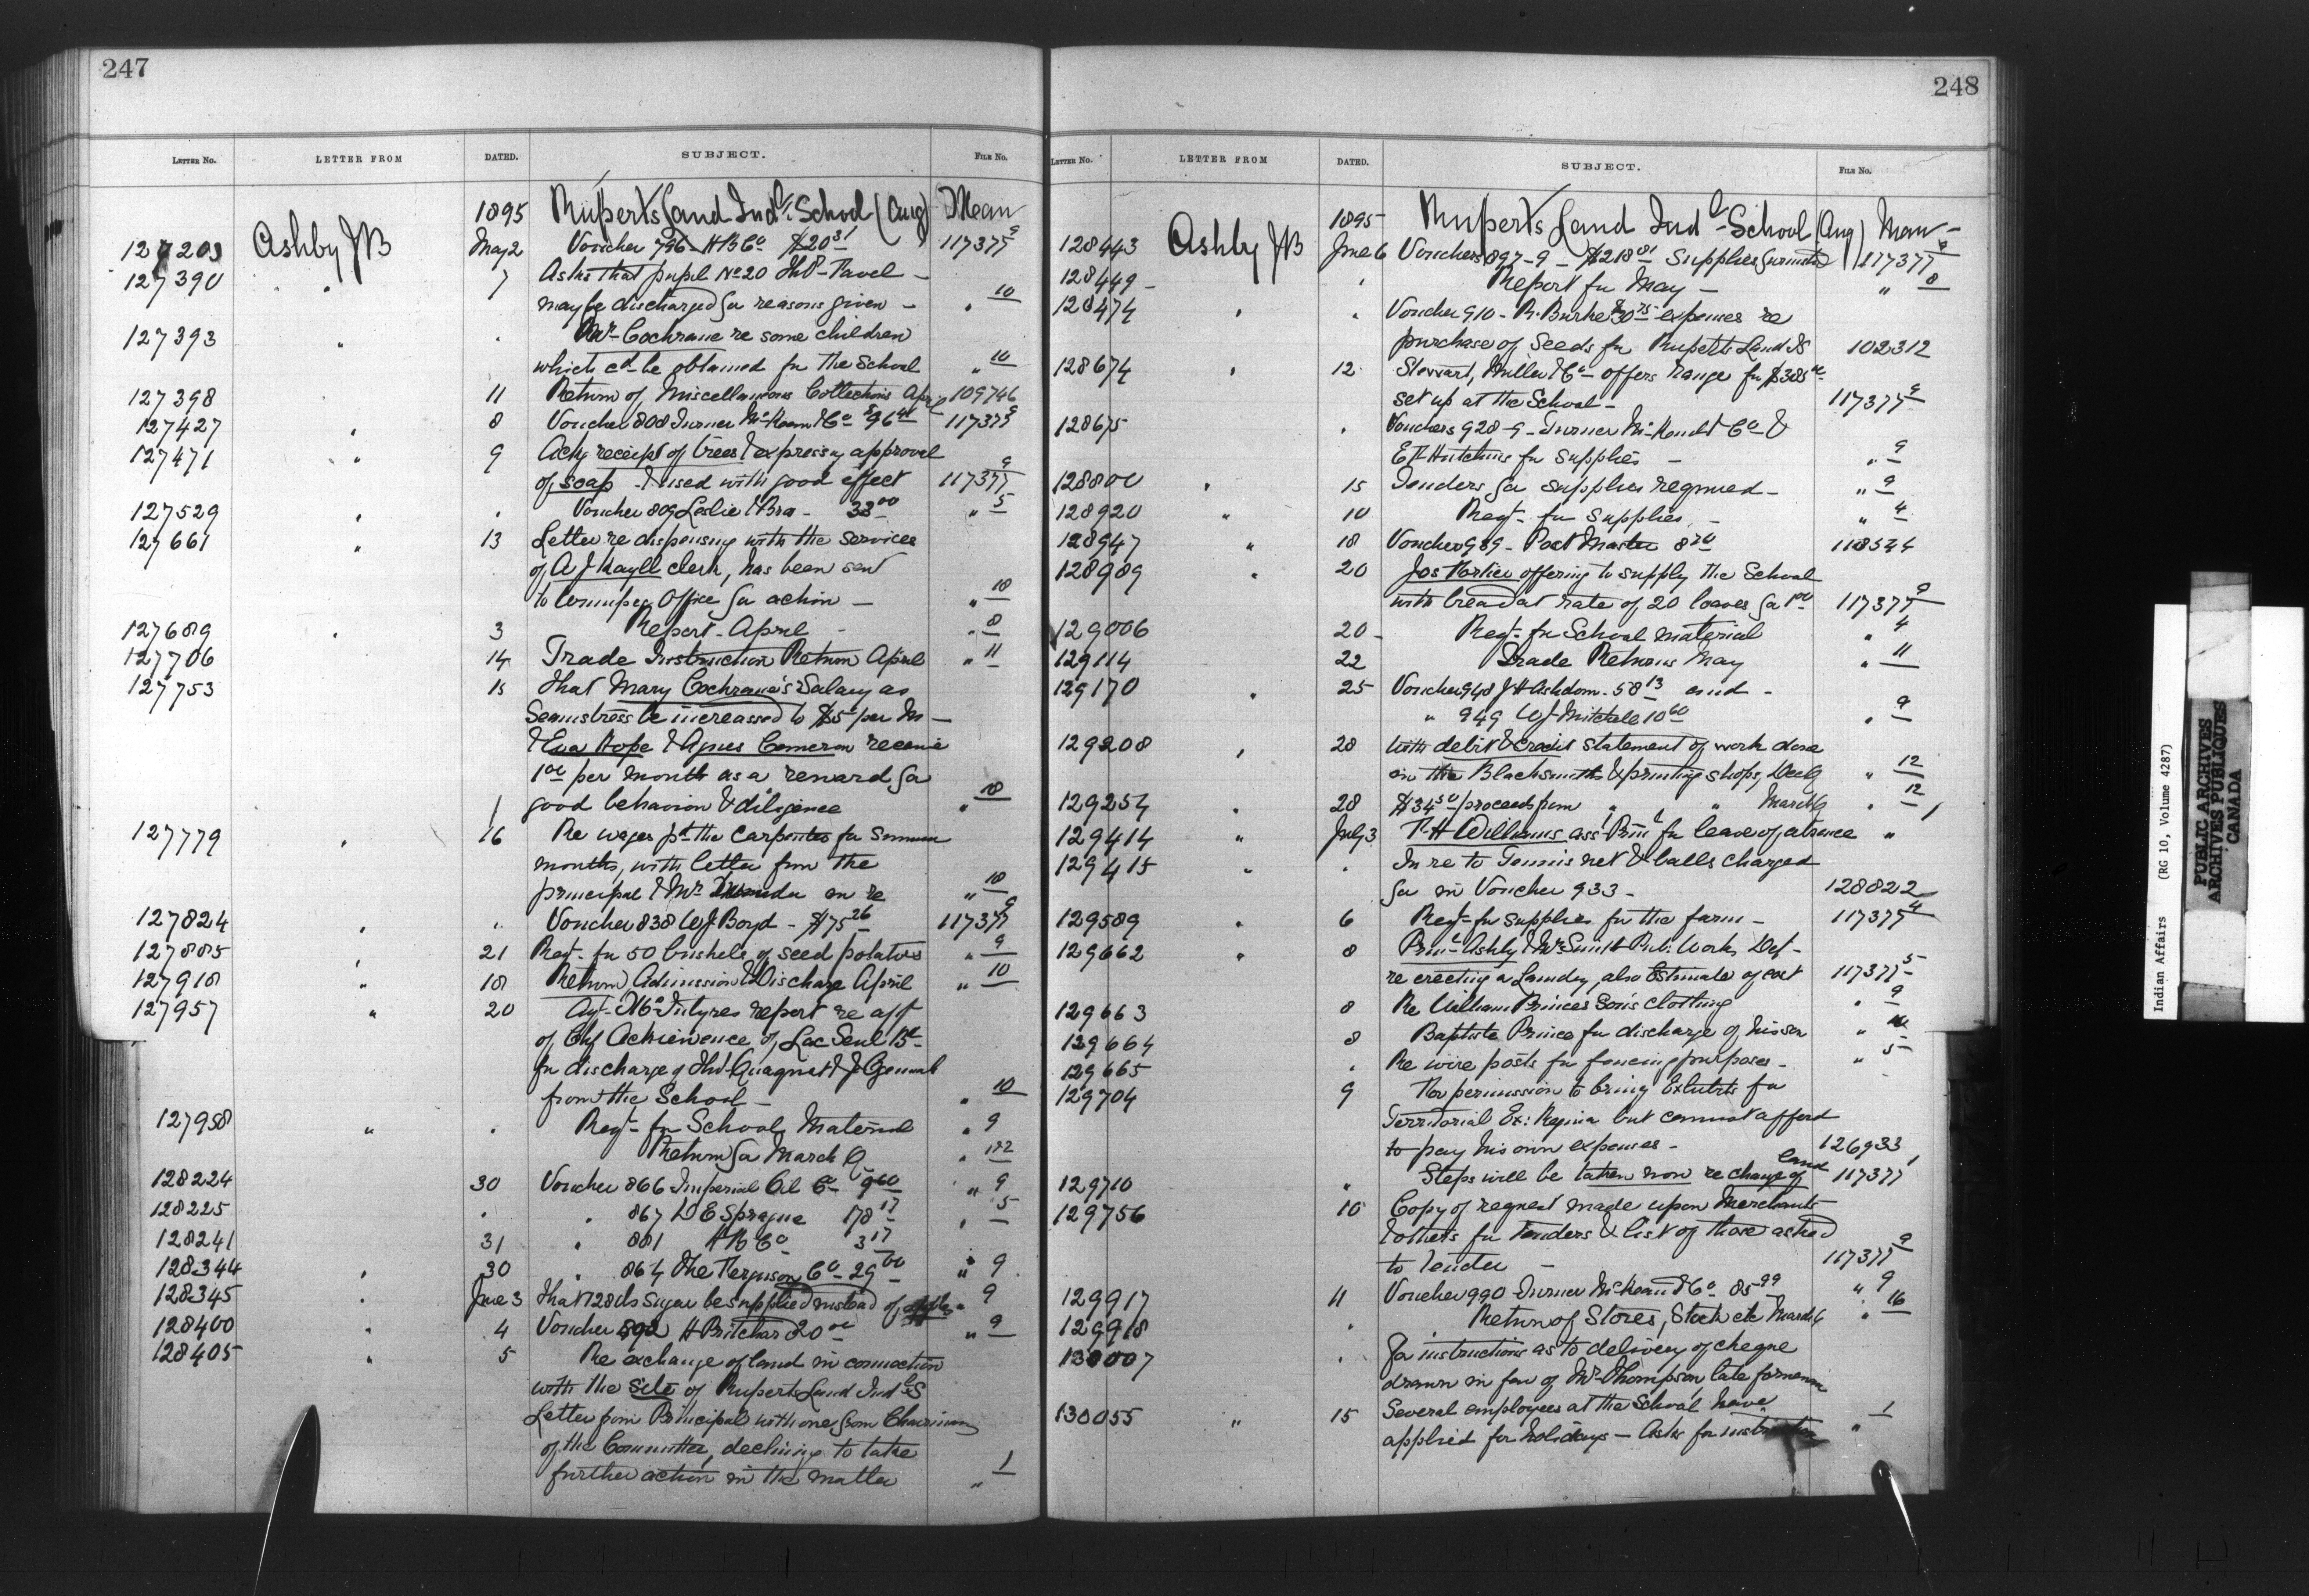 247
LETTER No. LETTER FROM DATED. SUBJECT. FILE No.
1895 Ruperts Land Indl School (Ang) Mem
127203 Ashby JB May 2 Voucher 796 HBCo $20 31 117377 9
127390 " " 7 Asks that pupil No 20 Thos Pavel
may be discharged for reasons given " 10
127393 " " Mr Cochrane re some children
which cd be obtained for the School " 10
127398 11 Return of Miscellaneous Collections April 109746
127427 " 8 Voucher 808 Turner McKeand & Co $96 41 117377 9
127471 " 9 Ackg receipt of trees & expressing approval
of soap & used with good effect 117377 9
127529 " " Voucher 809 Leslie & Bro 33 00 " 5
127661 " 13 Letter re dispensing with the services
of A J Kayll clerk, has been sent
to Winnipeg Office for action " 10
127689 " 3 Report April " 8
127706 14 Trade Instruction Return April " 11
127753 15 That Mary Cochrane's Salary as
Seamstress be increased to $5 per M
& Eva Hope & Agnes Cameron receive
1 00 per month as a reward for
good behavior & diligence " 10
127779 " 16 Re wages pd the Carpenter for Summer
months, with letter from the
principal & Mr in re " 10
127824 " " Voucher 838 W J Boyd - $75 26 117377 9
127885 " 21 Reqt. for 50 bushels of seed potatoes " 9
127918 " 18 Return, Admission & Discharge April " 10
127957 " 20 Agt. McIntyres report re app
of Chf Ackiewence of Lac Seul Bd
for discharge of Quagnat & J
from the School " 10
127958 " " Reqt for School Material " 9
Return for March Q " 12
128224 30 Voucher 866 Imperial Oil Co 9 60 " 9
128225 " " 867 D E Sprague 178 17 " 5
128241 31 " 881 H B Co 3 17
128344 " 30 " 864 The Ferguson Co 29 00 " 9
128345 " June 3 that 728 lbs Sugar be supplied instead of 9
128400 " 4 Voucher 892 H Pritchard 20 00 " 9
128405 " 5 Re exchange of land in connection
with the site of Ruperts Land Indl S
Letter from Principal with one from Chairman
of the Committee, declining to take
further action in the matter " 1
248
LETTER No. LETTER FROM DATED. SUBJECT. FILE No.
1895 Ruperts Land Indl School (Ang) Mem
128443 Ashby JB June 6 Vouchers 897-9 - $218 81 Supplies furnished 117377 9
128449 " Report for May " 8
128474 " " Voucher 910 - R. Burke $30 75 expenses re
purchase of Seeds for Ruperts Land IS 102312
128674 " 12 Stewart, Miller & Co offers range for $385 00
set up at the School 117377 9
128675 " Vouchers 928-9 - Turner McKeand & Co &
E F Hutchins for supplies " 9
128800 " 15 Tenders for supplies required " 9
128920 " 10 Reqt. for Supplies " 4
128947 " 18 Voucher 939 - Post Master 8 70 118544
128989 " 20 Jos offering to supply the School
with bread at rate of 20 loaves for 1 00 117377 9
129006 20 Reqt. for School material " 4
129114 22 Trade Returns May " 11
129170 " 25 Voucher 948 J H Ashdown 58 13 and
" 949 W J Mitchell 10 60 " 9
129208 " 28 with debit & credit statement of work done
in the Blacksmith & printing shops, Dec Q " 12
129254 " 28 $34 50 proceeds from " " March Q " 12
129414 " July 3 R H Williams asst Prinl for leave of absence "
129415 " " In re to Tennis net & balls charged
for in Voucher 933 128822
129589 " 6 Reqt for supplies for the farm 117377 4
129662 " 8 Prinl Ashby & Mr Smith Pub: Works Det
re erecting a Laundry, also Estimate of cost 117377 5
129663 8 Re William Princes Son's clothing " 9
129664 8 Baptiste Prince for discharge of his son " 10
129665 " Re wire posts for fencing purposes " 5
129704 9 For permission to bring Exhibits for
Territorial Ex: Regina but cannot afford
to pay his own expenses 126933
129710 " Steps will be taken now re change of land 117377 1
129756 10 Copy of request made upon Merchants
& others for tenders & list of those asked
to tender 117377 9
129917 11 Voucher 990 Turner McKeand & Co 85 99 " 9
129918 " Return of Stores, Stock etc March Q " 16
130007 " For instructions as to delivery of cheque
drawn in fav of Mr Thompson late foreman
130055 " 15 Several employees at the School have
applied for holidays - Asks for instruction " 1
Indian Affairs (RG 10, Volume 4287)
PUBLIC ARCHIVES
ARCHIVES PUBLIQUES
CANADA